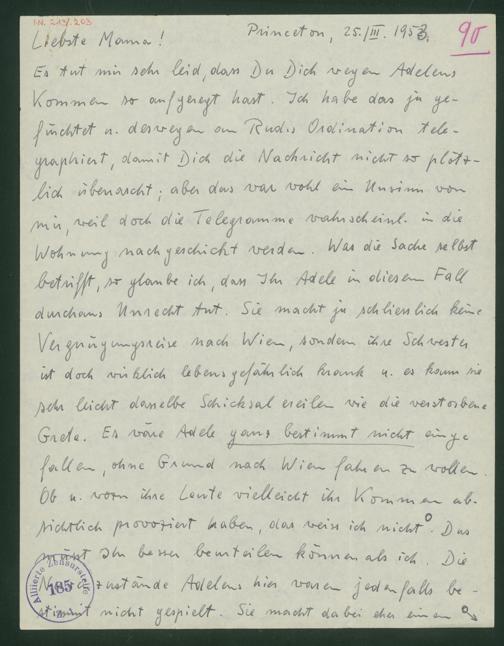 I.N. 213/203
Liebste Mama!
Princeton, 25./III. 1953.
90
Es tut mir sehr leid, dass Du Dich wegen Adelens
Kommen so aufgeregt hast. Ich habe das ja ge-
fürchtet u. deswegen an Rudis Ordination tele-
graphiert, damit Dich die Nachricht nicht so plötz-
lich überrascht; aber das war wohl ein Unsinn von
mir, weil doch die Telegramme wahrscheinl. in die
Wohnung nachgeschickt werden. Was die Sache selbst
betrifft, so glaube ich, dass Ihr Adele in diesem Fall
durchaus Unrecht tut. Sie macht ja schliesslich keine
Vergnügungsreise nach Wien, sondern ihre Schwester
ist doch wirklich lebensgefährlich krank u. es kann sie
sehr leicht dasselbe Schicksal ereilen wie die verstorbene
Grete. Es wäre Adele ganz bestimmt nicht einge
fallen, ohne Grund nach Wien fahren zu wollen.
Ob u. worin ihre Leute vielleicht ihr Kommen ab-
sichtlich provoziert haben, das weiss ich nicht°. Das
müsst Ihr besser beurteilen können als ich. Die
zustände Adelens hier waren jedenfalls be-
stimmt nicht gespielt. Sie macht dabei eher einen
Alliierte Zensurstelle
185